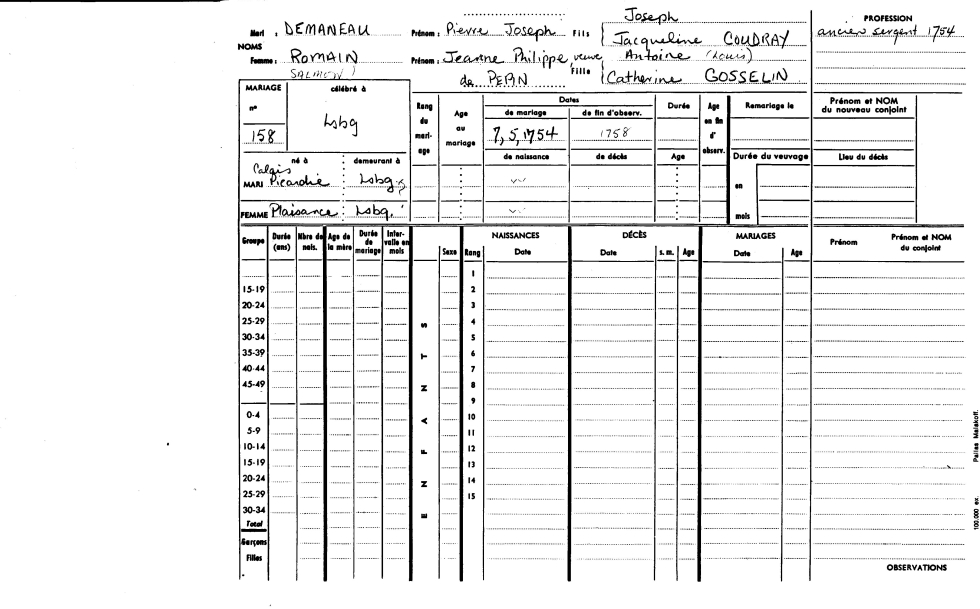 Joseph
Mari : DEMANEAU Prénom : Pierre Joseph Fils { Jacqueline COUDRAY
PROFESSION
ancien sergent 1754
NOMS
Femme : ROMAIN Prénom : Jeanne Philippe, veuve Antoine (Louis)
SALMON) de PEPIN Fille { Catherine GOSSELIN
MARIAGE célébré à
n° Lsbg
158
Rang du mari- age
Age au mariage
Dates
de mariage de fin d'observ.
7, 5, 1754 1758
de naissance de décès
Durée
Age
Age en fin d' observ.
Remariage le
Durée du veuvage
en
mois
Prénom et NOM du nouveau conjoint
Lieu du décès
né à demeurant à
Calais
MARI Picardie : Lsbg.
FEMME Plaisance : Lsbg.
Groupe Durée (ans) Nbre de nais. Age de la mère Durée de mariage Inter- valle en mois
Sexe Rang
NAISSANCES
Date
DÉCÈS
Date s. m. Age
MARIAGES
Date Age
Prénom Prénom et NOM du conjoint
1
15-19 2
20-24 3
25-29 4
30-34 5
35-39 6
40-44 7
45-49 8
9
0-4 10
5-9 11
10-14 12
15-19 13
20-24 14
25-29 15
30-34
Total
Garçons
Filles
ENFANTS
OBSERVATIONS
100.000 ex. Pallas Malakoff.